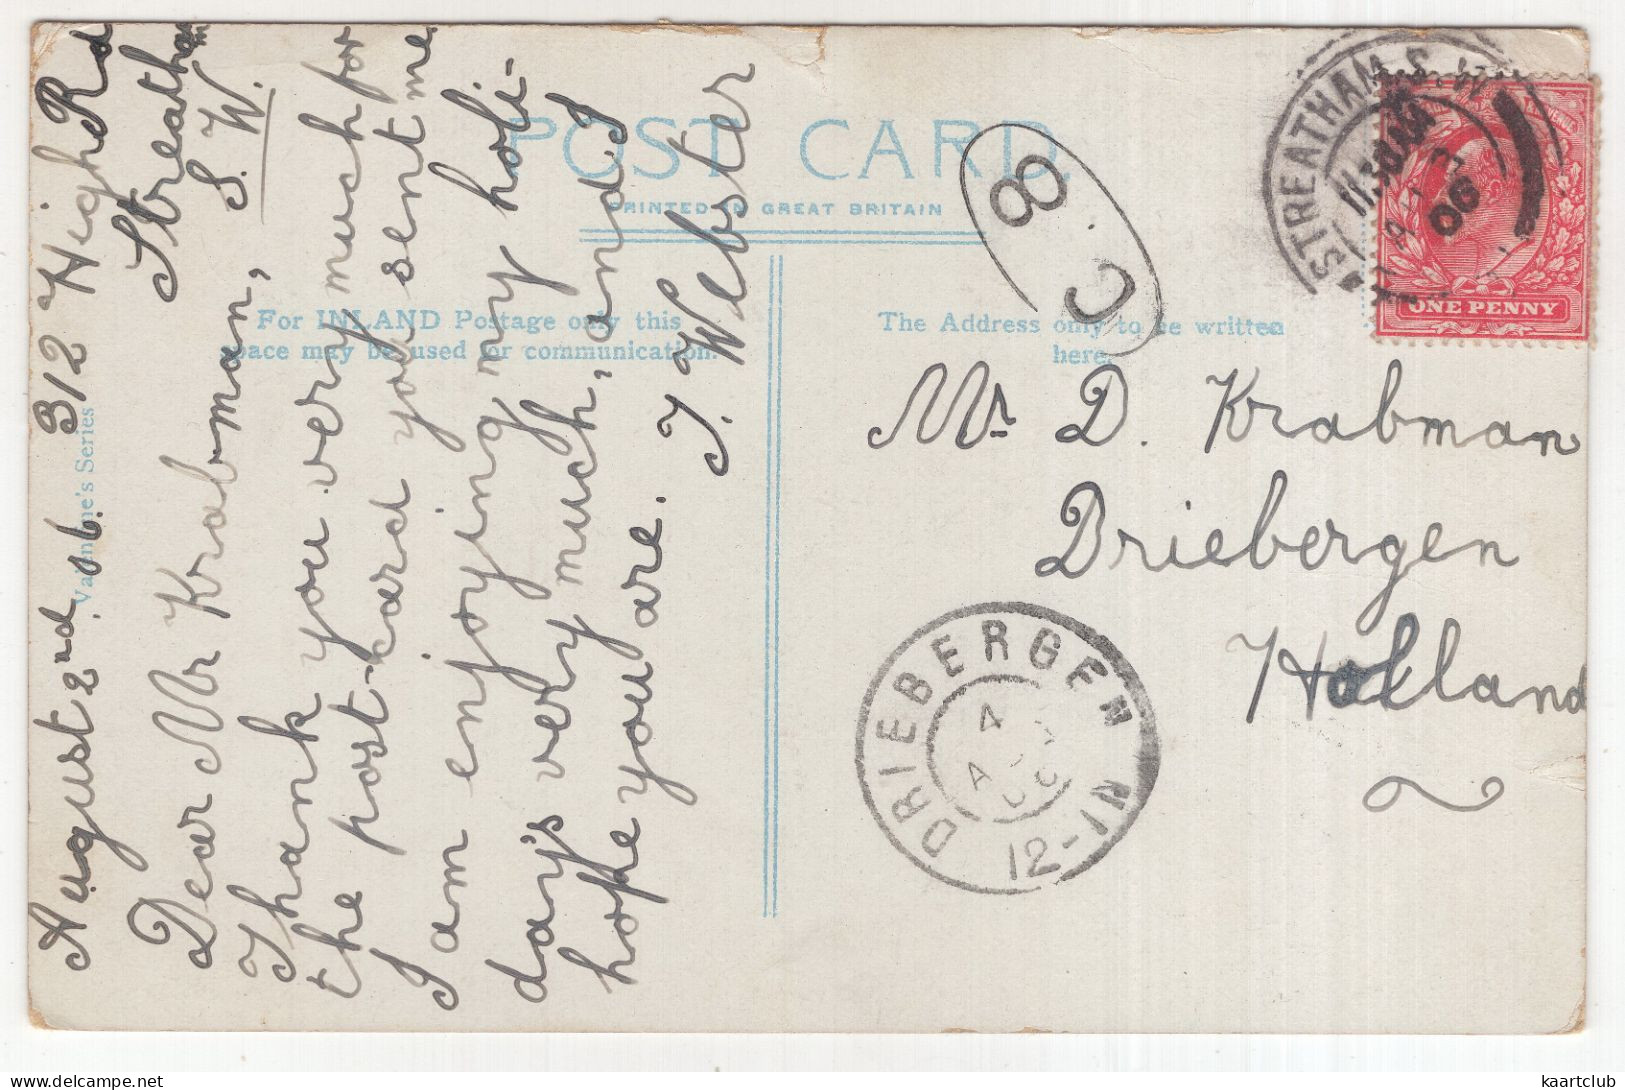 August 2nd. 06. 312 High Rd
Streatham
S. W.
Dear Mr Krabman,
Thank you very much for
the post-card you sent me
I am enjoying my holi-
day's very much, and I
hope you are. J. Webster
POST CARD.
PRINTED IN GREAT BRITAIN
For INLAND Postage only this
space may be used for communication.
The Address only to be written
here.
Valentine's Series
8
STREATHAM. S.W.
11.30 AM
06
ONE PENNY
Mr D. Krabman
Driebergen
Holland
DRIEBERGEN
4
12-1N
kaartclub